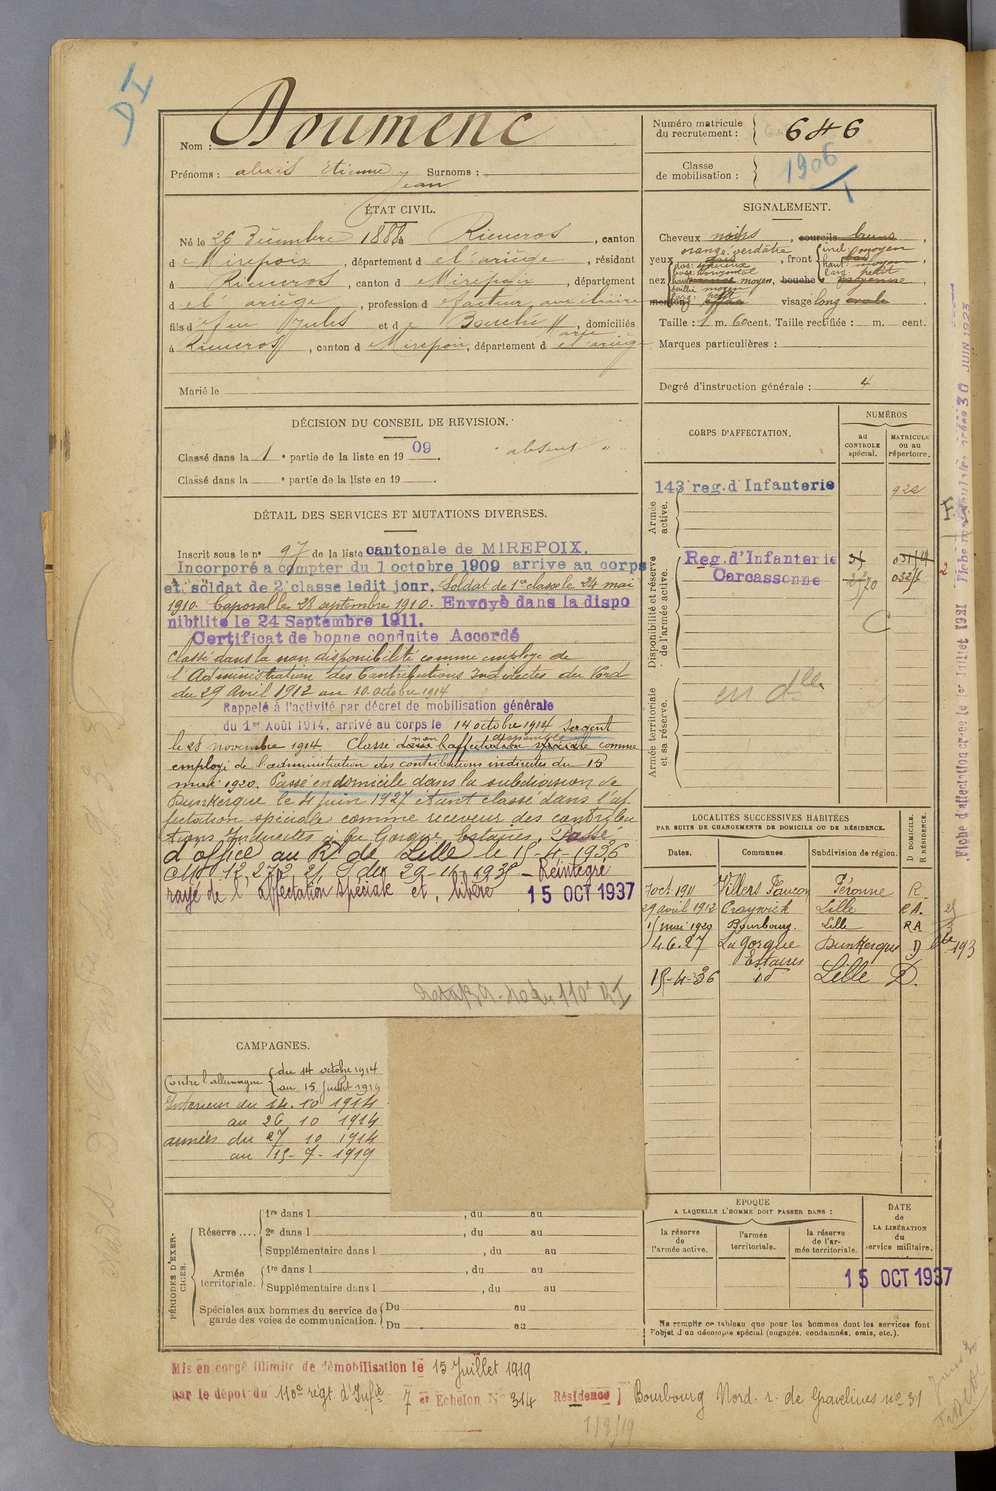 DI
Nom : Doumenc
Prénoms : alexis Etienne Jean Surnoms :
Numéro matricule du recrutement : 646
Classe de mobilisation : 1906
ÉTAT CIVIL.
Né le 26 Décembre 1888 à Rieucros, canton
d e Mirepoix, département d e l'ariège, résidant
à Rieucros, canton d Mirepoix, département
d e l'ariège, profession d e facteur auxiliaire
fils d e feu Jules et d e Bouché Marie, domiciliés
à Rieucros, canton d Mirepoix, département d e l'ariège
Marié le
SIGNALEMENT.
Cheveux noirs, sourcils bruns,
yeux orangé verdâtre, front incl: moyen
haut: moyen
larg: petit
nez dos: sinueux
base: horizontal
haut: moyen, bouche moyenne,
saillie moyen
larg: petit
menton visage long ovale
Taille : 1 m. 60 cent. Taille rectifiée : m. cent.
Marques particulières :
Degré d'instruction générale : 4
DÉCISION DU CONSEIL DE REVISION.
Classé dans la 1e partie de la liste en 1909. "absent"
Classé dans la e partie de la liste en 19
DÉTAIL DES SERVICES ET MUTATIONS DIVERSES.
Inscrit sous le n° 97 de la liste cantonale de MIREPOIX.
Incorporé a compter du 1 octobre 1909 arrive au corps
et soldat de 2e classe ledit jour. Soldat de 1re classe le 24 mai
1910. Caporal le 29 septembre 1910. Envoyè dans la dispo
nibilité le 24 Septembre 1911.
Certificat de bonne conduite Accordé
Classé dans la non disponibilité comme employé de
l'Administration des Contributions Indirectes du Nord
du 29 avril 1912 au 10 octobre 1914
Rappelé à l'activité par décret de mobilisation générale
du 1er Août 1914, arrivé au corps le 14 octobre 1914 Sergent
le 25 novembre 1914. Classé non disponible dans l'affectation spéciale comme
employé de l'administration des contributions indirectes du 15
mai 1920. Passé en domicile dans la subdivision de
Dunkerque le 4 juin 1927 étant classé dans l'af-
fectation spéciale comme receveur des contribu
tions Indirectes à La Gorgue Estaires. Passé
d'office au Rt de Lille le 15-4-1936
Réintégré
rayé de l'affectation spéciale et libéré 15 OCT 1937
CORPS D'AFFECTATION.
NUMÉROS
au CONTROLE spécial.
MATRICULE ou au répertoire.
Armée active.
143 reg. d'Infanterie 922
Disponibilité et réserve de l'armée active.
Reg. d'Infanterie
Carcassonne
C
Armée territoriale et sa réserve.
en dlle
LOCALITÉS SUCCESSIVES HABITÉES
PAR SUITE DE CHANGEMENTS DE DOMICILE OU DE RÉSIDENCE.
Dates. Communes. Subdivision de région. D DOMICILE. R RÉSIDENCE.
7 oct 1911 Villers Faucon Péronne R
29 avril 1912 Craywick Lille RA.
15 mai 1920 Bourbourg Lille RA
4.6.27 La Gorgue Estaires Dunkerque D
15-4-36 id Lille D.
CAMPAGNES.
Contre l'allemagne du 14 octobre 1914
au 15 juillet 1919
Intérieur du 14. 10 1914
au 26 10 1914
armées du 27 10 1914
au 15-7-1919
PÉRIODES D'EXERCICES.
Réserve .... 1re dans l , du au
2e dans l , du au
Supplémentaire dans l , du au
Armée territoriale. 1re dans l , du au
Supplémentaire dans l , du au
Spéciales aux hommes du service de garde des voies de communication. Du au
Du au
EPOQUE
A LAQUELLE L'HOMME DOIT PASSER DANS :
la réserve de l'armée active.
l'armée territoriale.
la réserve de l'armée territoriale.
DATE de LA LIBÉRATION du service militaire.
15 OCT 1937
Ne remplir ce tableau que pour les hommes dont les services font
l'objet d'un décompte spécial (engagés, condamnés, omis, etc.).
Mis en congé illimité de démobilisation le 15 Juillet 1919
par le dépôt du 110e régt d'Infie 7 er Echelon N° 314 Résidence Bourbourg Nord. r. de Gravelines n° 31
1/8/19
Fiche d'affectation créée le 1er Juillet 1921
30 JUIN 1923